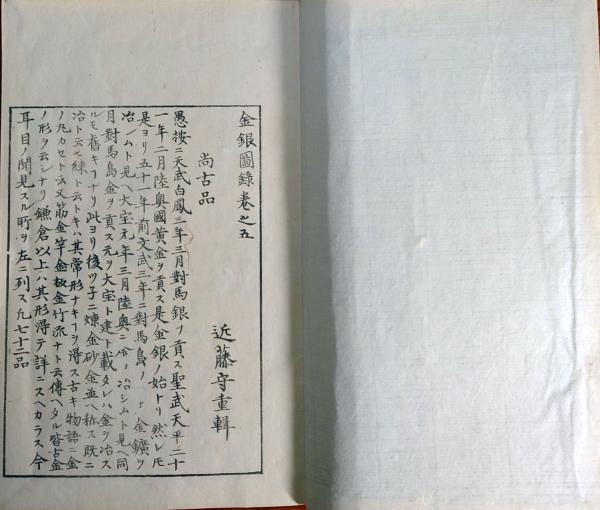 金銀圖録卷之五
近藤守重輯
尚古品
愚按ニ天武白鳳三年三月對馬銀ヲ貢ス聖武天平二十
一年二月陸奥國黄金ヲ貢ス是金銀ノ始トリ然レ𪜈
是ヨリ五十一年前文武三年ニ對馬島ノ 金鑛ヲ
冶ンムト見ヘ大宝元年三月陸奥ニ 冶シムト見ヘ同
月對馬島金ヲ貢ス元ヲ大宝ト建ト載タレハ金ヲ冶ス
ルモ舊キヿナリ此ヨリ後ツ子ニ煉金砂金並ヘ称ス既ニ
冶ト云ヒ練ト云トキハ其常形ナキヿヲ得ス古キ物語ニ金
ノ丸カセト云又筋金竿金板金竹流ナト云傳ヘタル皆古金
ノ形ヲ云シナリ鎌倉以上ハ其形得テ詳ニスヘカラス今
耳目ノ聞見スル所ヲ左ニ列ス凡七十二品